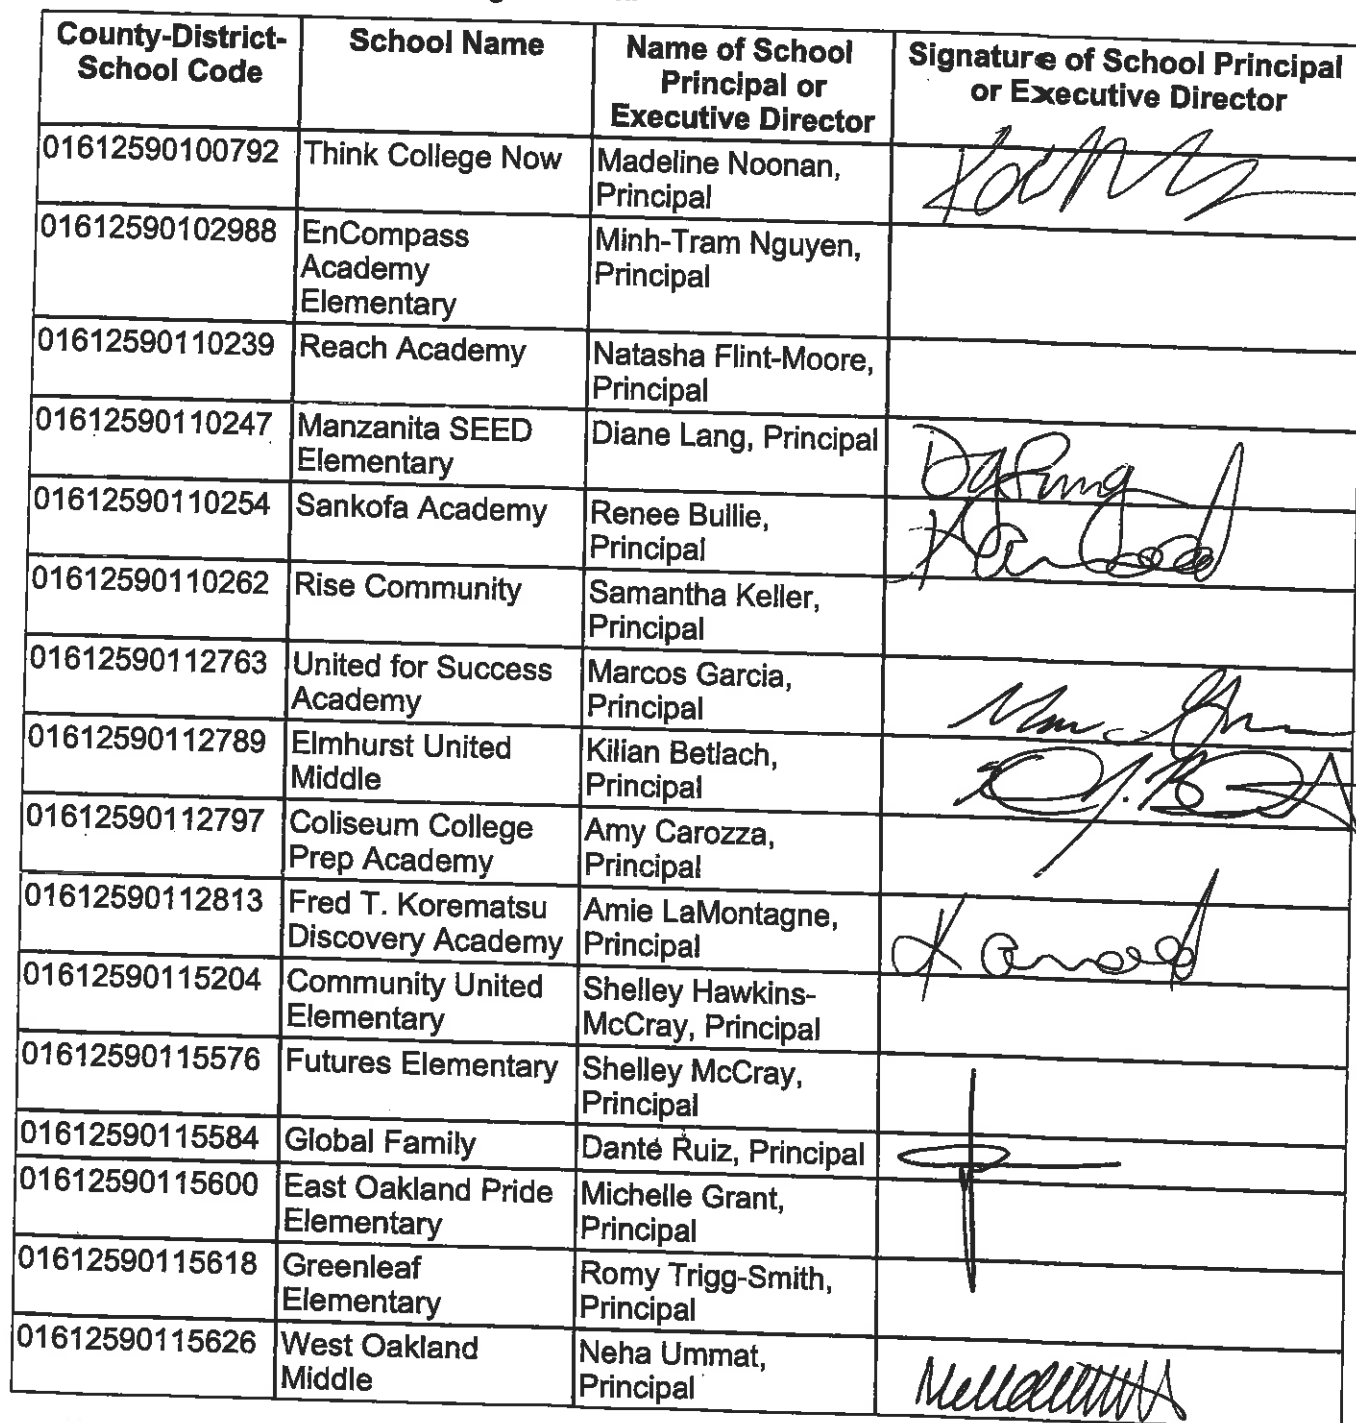 County-District-
School Code
School Name
Name of School
Principal or
Executive Director
Signature of School Principal
or Executive Director
01612590100792
Think College Now
Madeline Noonan,
Principal
01612590102988
EnCompass
Academy
Elementary
Minh-Tram Nguyen,
Principal
01612590110239
Reach Academy
Natasha Flint-Moore,
Principal
01612590110247
Manzanita SEED
Elementary
Diane Lang, Principal
01612590110254
Sankofa Academy
Renee Bullie,
Principal
01612590110262
Rise Community
Samantha Keller,
Principal
01612590112763
United for Success
Academy
Marcos Garcia,
Principal
01612590112789
Elmhurst United
Middle
Kilian Betlach,
Principal
01612590112797
Coliseum College
Prep Academy
Amy Carozza,
Principal
01612590112813
Fred T. Korematsu
Discovery Academy
Amie LaMontagne,
Principal
01612590115204
Community United
Elementary
Shelley Hawkins-
McCray, Principal
01612590115576
Futures Elementary
Shelley McCray,
Principal
01612590115584
Global Family
Danté Ruiz, Principal
01612590115600
East Oakland Pride
Elementary
Michelle Grant,
Principal
01612590115618
Greenleaf
Elementary
Romy Trigg-Smith,
Principal
01612590115626
West Oakland
Middle
Neha Ummat,
Principal